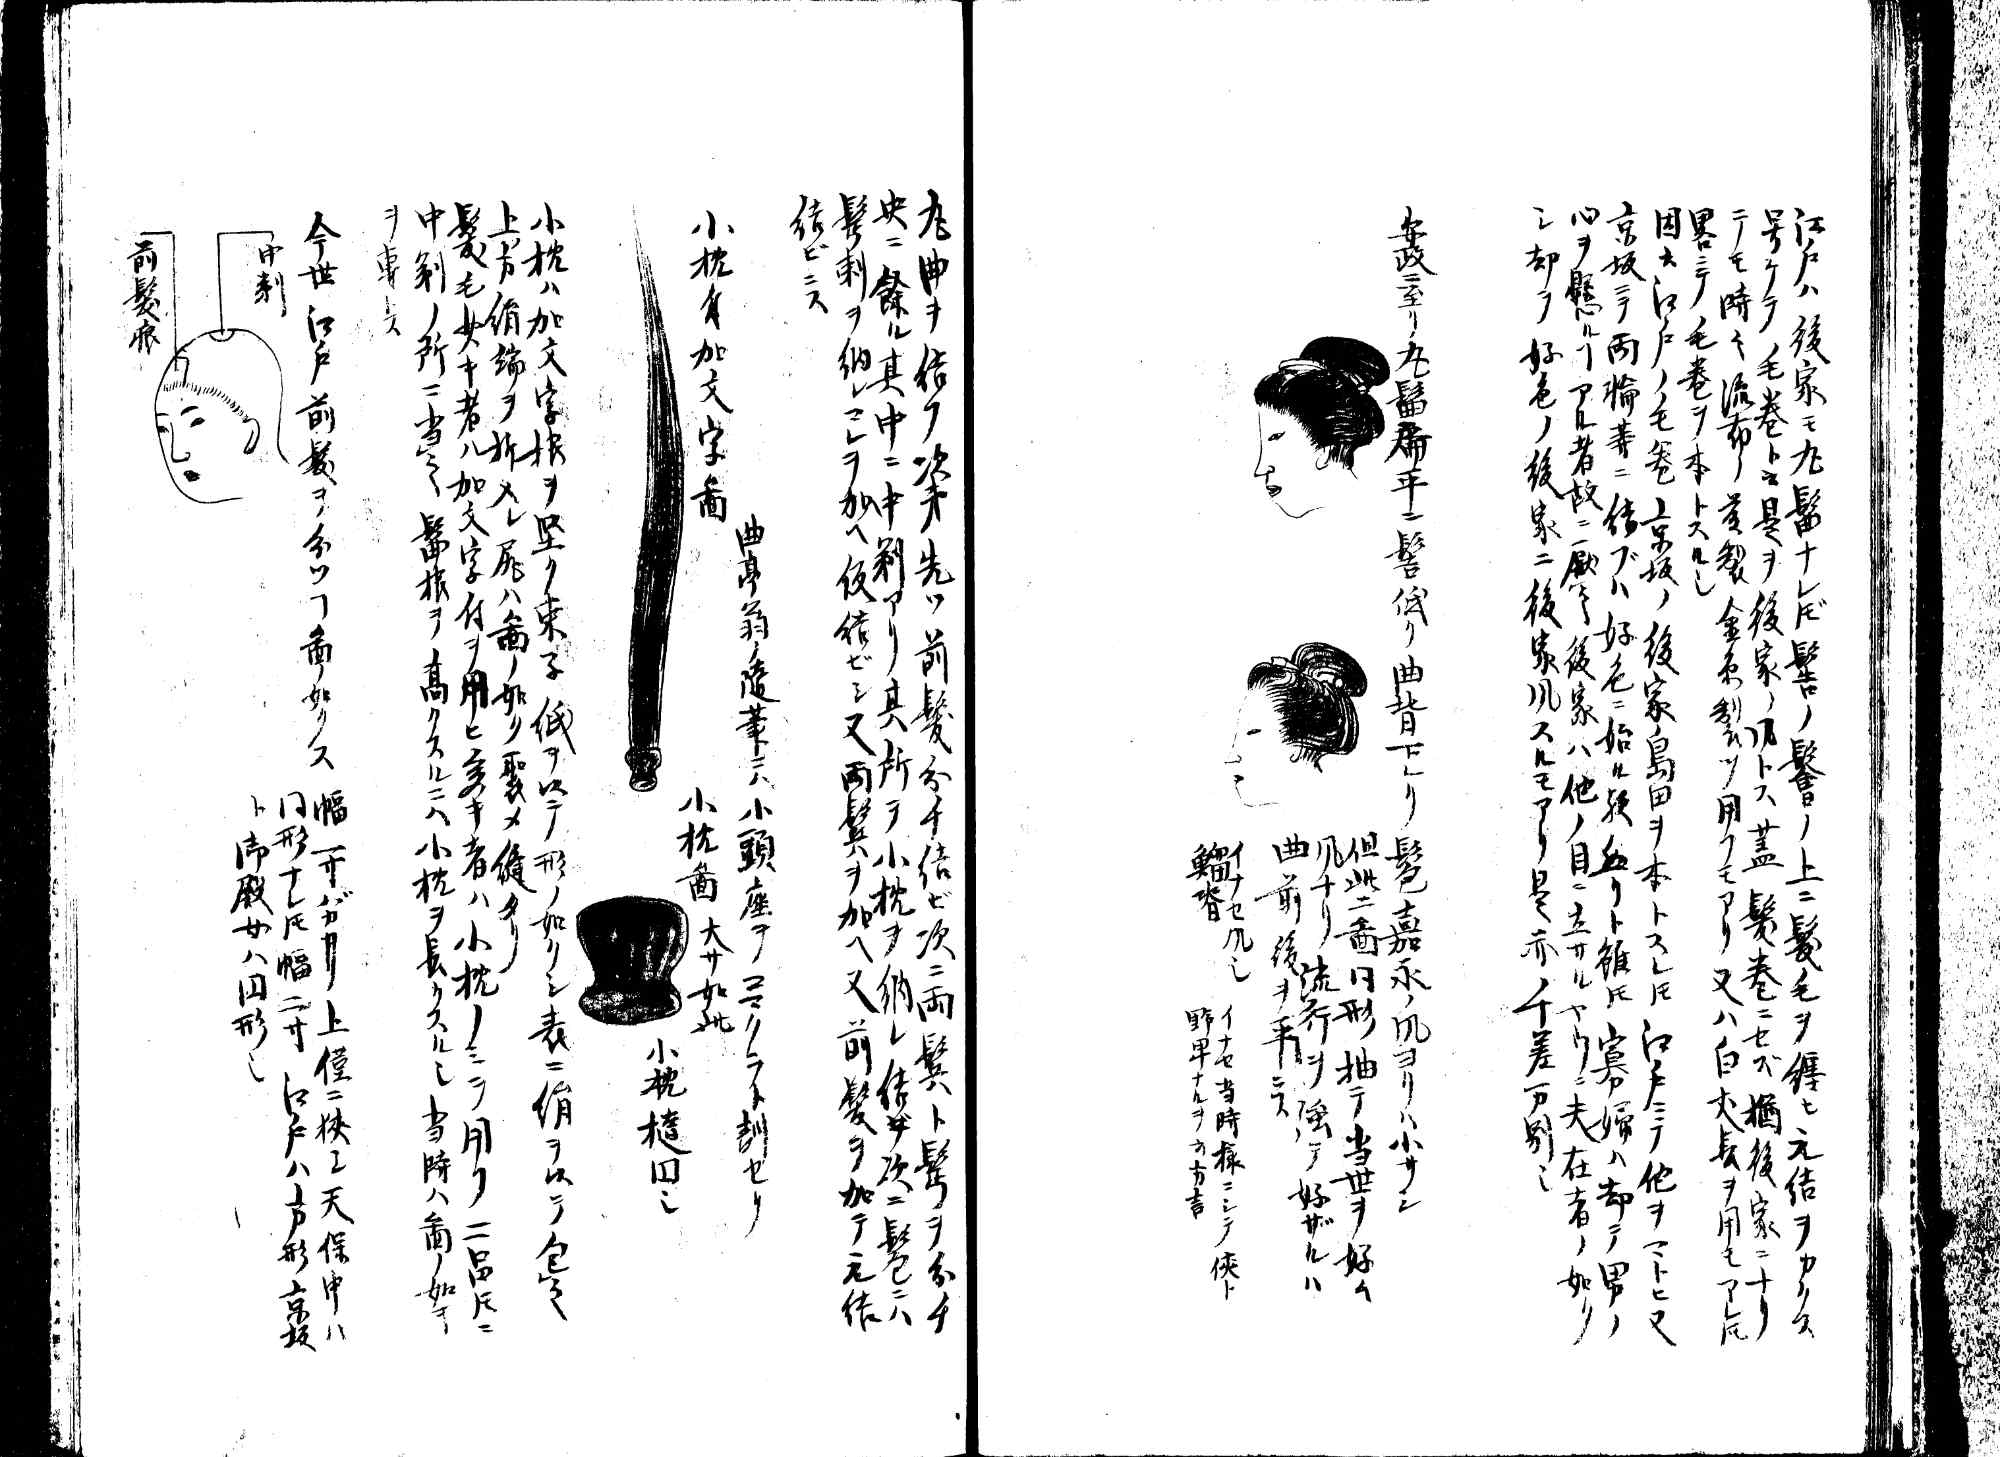 江戸ハ後家モ丸髷ナレ𪜈髻ノ髷ノ上ニ髪毛ヲ纏ヒ元結ヲカクス
号ケテノ毛巻ト云是ヲ後家ノ風トス蓋髪巻ニセズ猶後家ニナリ
ニテモ時々流布ノ 製金糸製ヲ用フモアリ又ハ白丈長ヲ用モアレ𪜈
畧ニテノ毛巻ヲ本トスル也
因云江戸ノ毛巻京坂ノ後家ノ島田ヲ本トスレ𪜈江戸ニテ他ヲマトヒ又
京坂ニテ両輪等ニ結ブハ好色ニ始ル 如リト雖𪜈寡婦ハ却テ男ノ
心ヲ懸ルヿアル者故ニ厭テ後家ハ他ノ目ニ立サルヤウニ夫在者ノ如ク
シ却ヲ好色ノ後家ニ後家風スルモアリ是亦ノ千差万別也
安政ニ至リ丸髷扁平ニ髻低ク曲背下レリ髱嘉永ノ風ヨリハ小サシ
但此二圖同形 テ当世ヲ好ム
風ナリ流行ヲ強テ好ザルハ
曲前後ヲ平ニス
イナセ風也
鯔背
イナセ当時様ニシテ侠ト
野卑ナルヲ云方言
丸曲ヲ結フ次第先ツ前髪分チ結ビ次ニ両鬢ト髱ヲ分チ
央ニ餘ル其中ニ中剃アリ其所ヲ小枕ヲ納レ結ヒ次ニ髱ニハ
髱刺ヲ納レコレヲ加ヘ仮結ビシ又両鬢ヲ加ヘ又前髪ヲ加テ元結
結ビニス
小枕付加文字圖
曲亭翁ノ随筆ニハ小頭座ヲコマクラト訓セリ
小枕圖大サ如此
小枕 同シ
小枕ハ加文字根ヲ堅ク束子紙ヲ以テ形ノ如クシ表ニ絹ヲ以テ包ム
上方絹端ヲ折メレ尻ハ圖ノ如ク聚メ縫タリ
髪毛少キ者ハ加文字付ヲ用ヒ多キ者ハ小枕ノミヲ用フ二品𪜈ニ
中剃ノ所ニ当テ髷根ヲ高クスルニハ小枕ヲ長クスル也当時ハ圖ノ如キ
ヲ専トス
今世江戸前髪ヲ分ツヿ圖ノ如クス
幅一寸バカリ上僅ニ狭シ天保中ハ
同形ナレ𪜈幅二寸江戸ハ方形京坂
ト御殿女ハ円形也
中剃
前髪痕